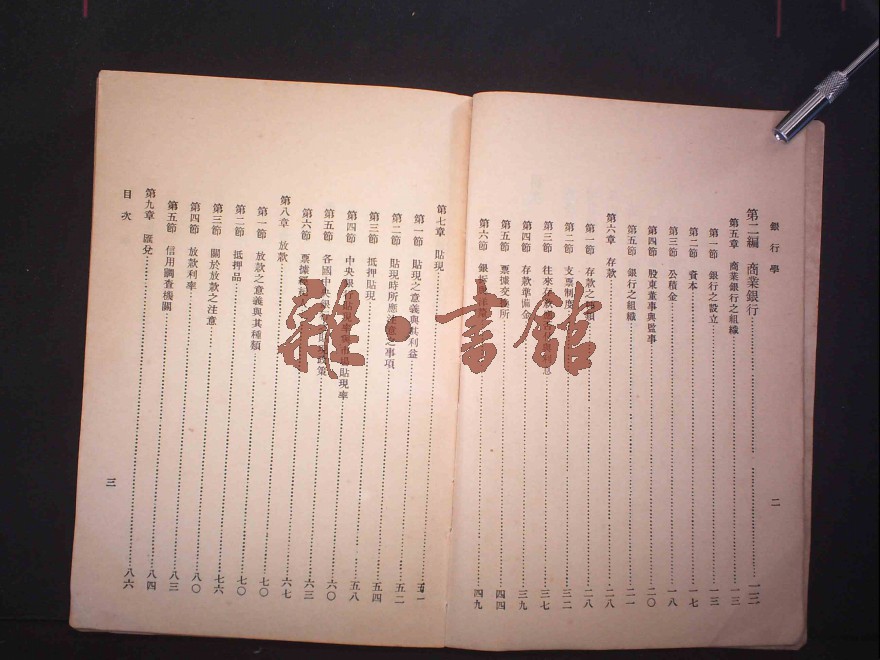 銀行學
二
第二編 商業銀行 一三
第五章 商業銀行之組織 一三
第一節 銀行之設立 一三
第二節 資本 一七
第三節 公積金 一八
第四節 股東董事與監事 二〇
第五節 銀行之組織 二一
第六章 存款 二八
第一節 存款之 二八
第二節 支票制度 三二
第三節 往來存款 三七
第四節 存款準備金 三九
第五節 票據交換所 四四
第六節 銀 四九
第七章 貼現 五一
第一節 貼現之意義與其利益 五一
第二節 貼現時所應注意之事項 五二
第三節 抵押貼現 五四
第四節 中央銀行貼現率與市場貼現率 五八
第五節 各國中央銀 政策 六〇
第六節 票據 六三
第八章 放款 六七
第一節 放款之意義與其種類 七〇
第二節 抵押品 七〇
第三節 關於放款之注意 七六
第四節 放款利率 八〇
第五節 信用調查機關 八三
第九章 匯兌 八四
八六
目次
三
雜·書館